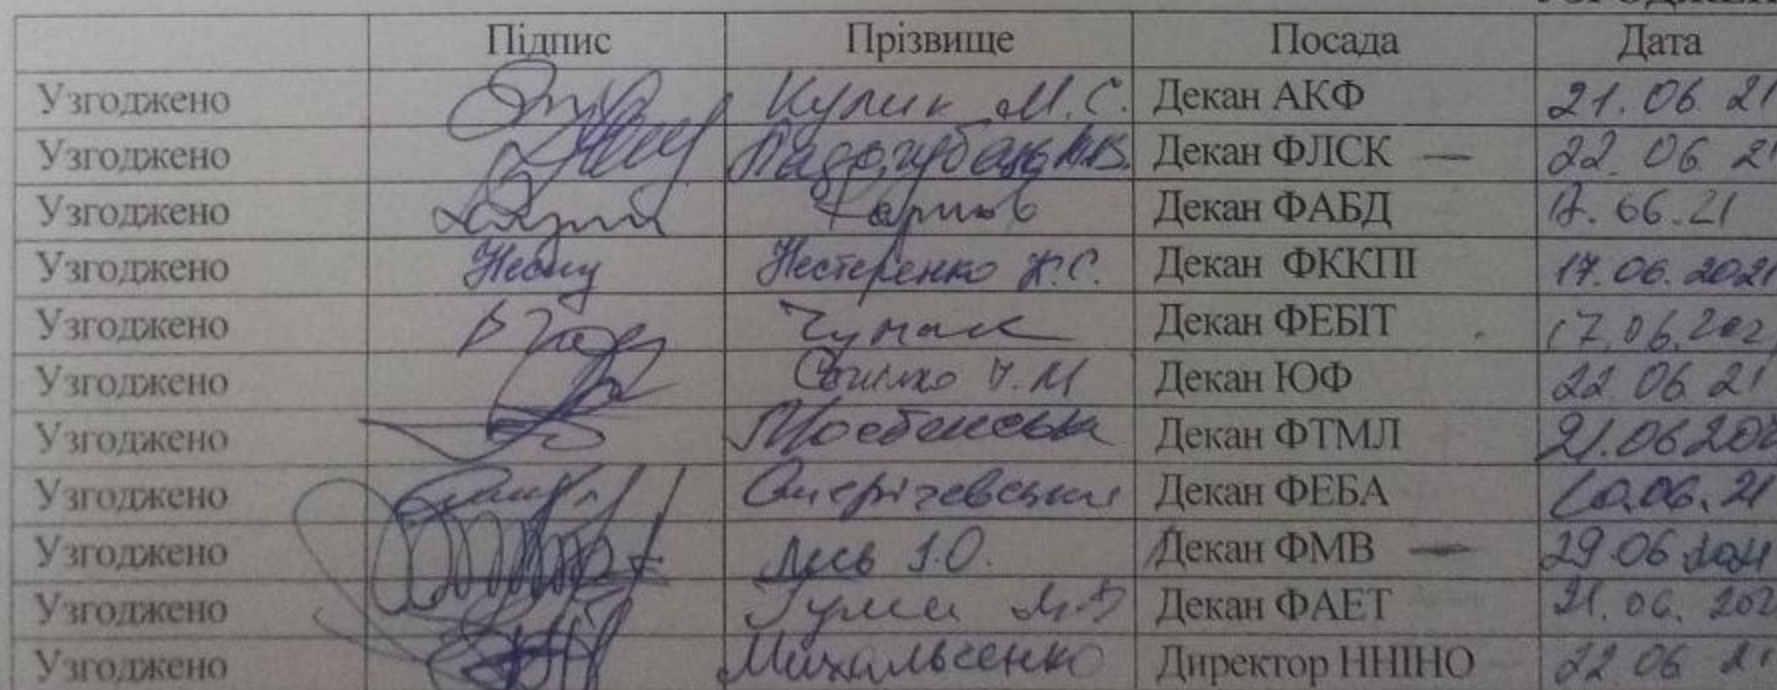 Підпис Прізвище Посада Дата
Узгоджено Кулик М.С. Декан АКФ 21.06.21
Узгоджено Декан ФЛСК — 22.06.2
Узгоджено Карпов Декан ФАБД 17.06.21
Узгоджено Нестеренко К.С. Декан ФККПІ 17.06.2021
Узгоджено Чумак Декан ФЕБІТ 17.06.202
Узгоджено Декан ЮФ 22.06.21
Узгоджено Декан ФТМЛ 21.06.202
Узгоджено Декан ФЕБА .06.21
Узгоджено І.О. Декан ФМВ — 29.06.2021
Узгоджено Декан ФАЕТ 21.06.202
Узгоджено Михальченко Директор ННІНО 22.06.21